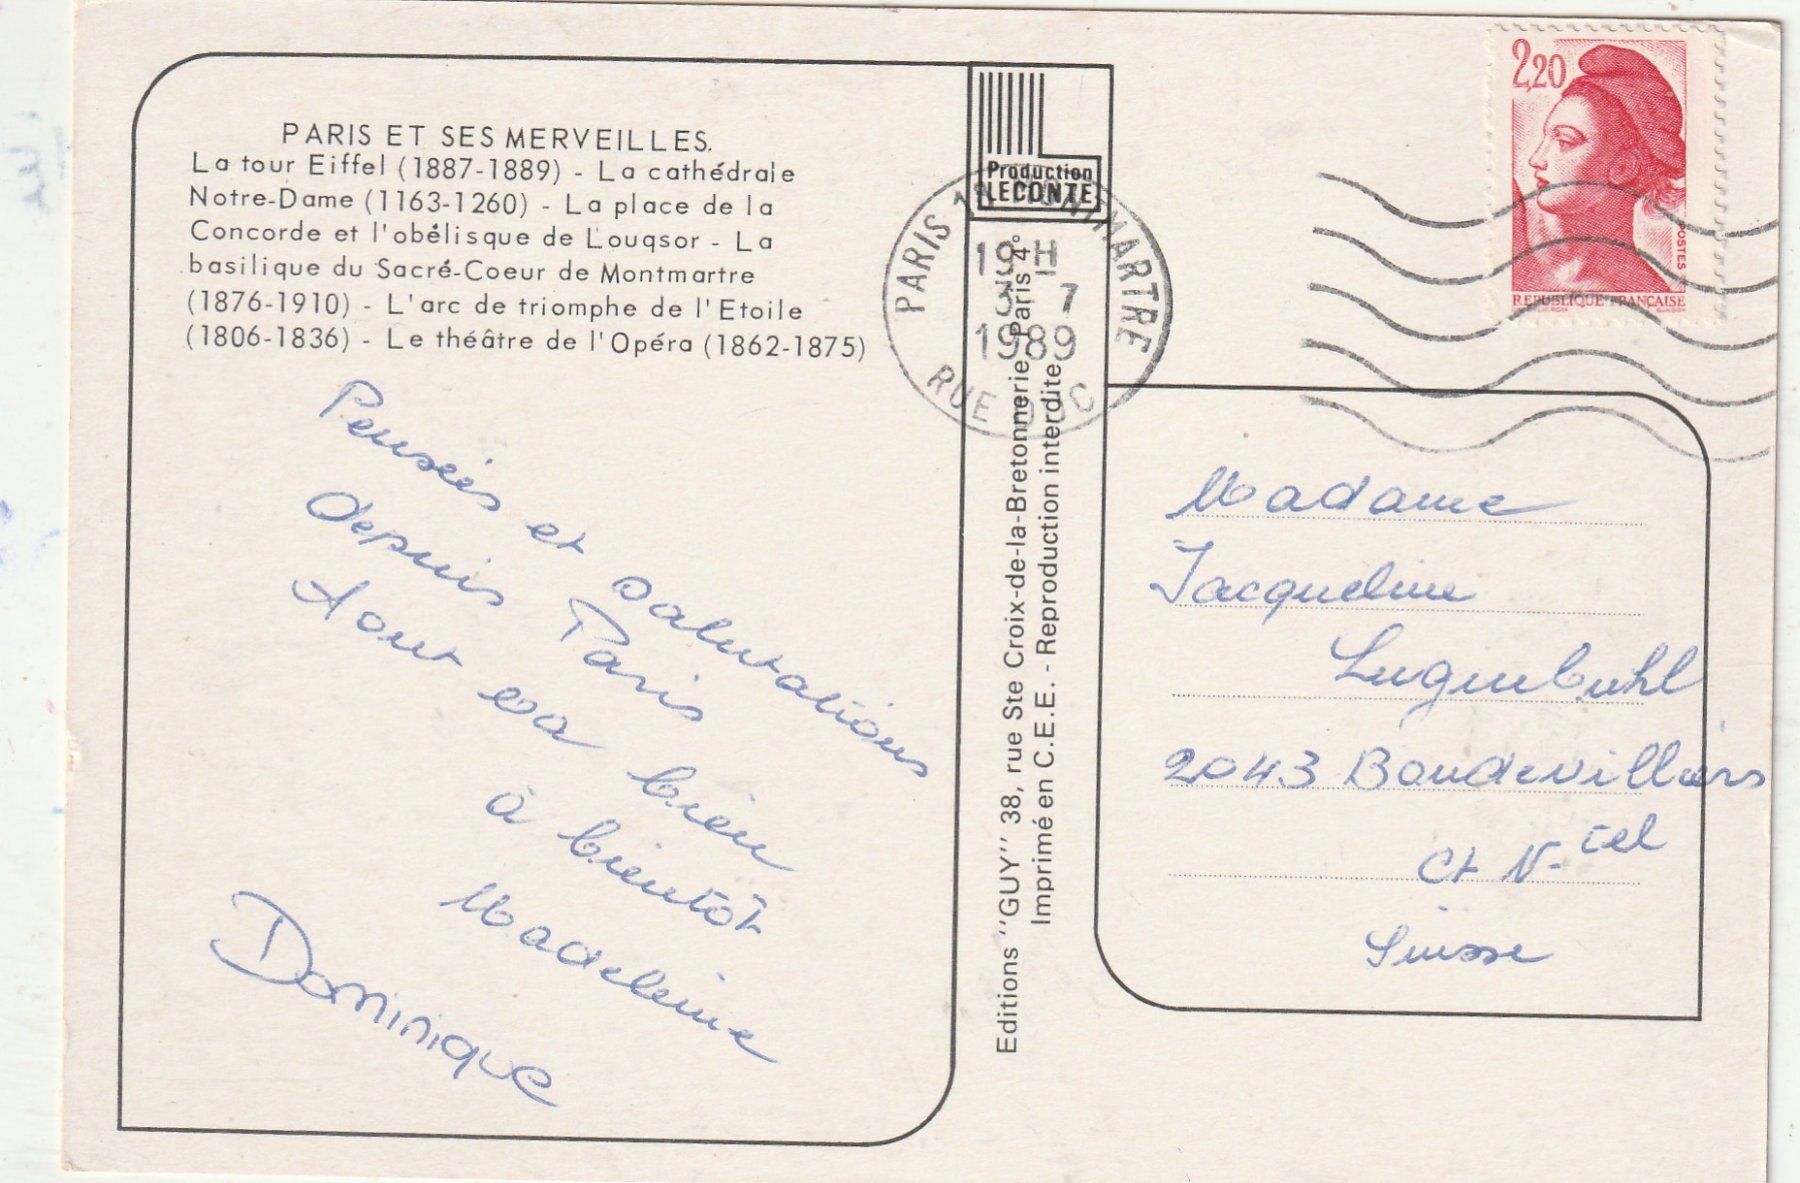 PARIS ET SES MERVEILLES.
La tour Eiffel (1887-1889) - La cathédrale
Notre-Dame (1163-1260) - La place de la
Concorde et l'obélisque de Louqsor - La
basilique du Sacré-Coeur de Montmartre
(1876-1910) - L'arc de triomphe de l'Etoile
(1806-1836) - Le théâtre de l'Opéra (1862-1875)
Pensées et salutations
depuis Paris
tout va bien
à bientôt
Madeleine
Dominique
Production
LECONTE
Editions "GUY" 38, rue Ste Croix-de-la-Bretonnerie Paris 4°
Imprimé en C.E.E. - Reproduction interdite
PARIS 18 MONTMARTRE
19 H
3 7
1989
RUE DUC
2,20
POSTES
REPUBLIQUE FRANÇAISE
GANDON
Madame
Jacqueline
Luginbuhl
2043 Boudevilliers
Ct N-tel
Suisse